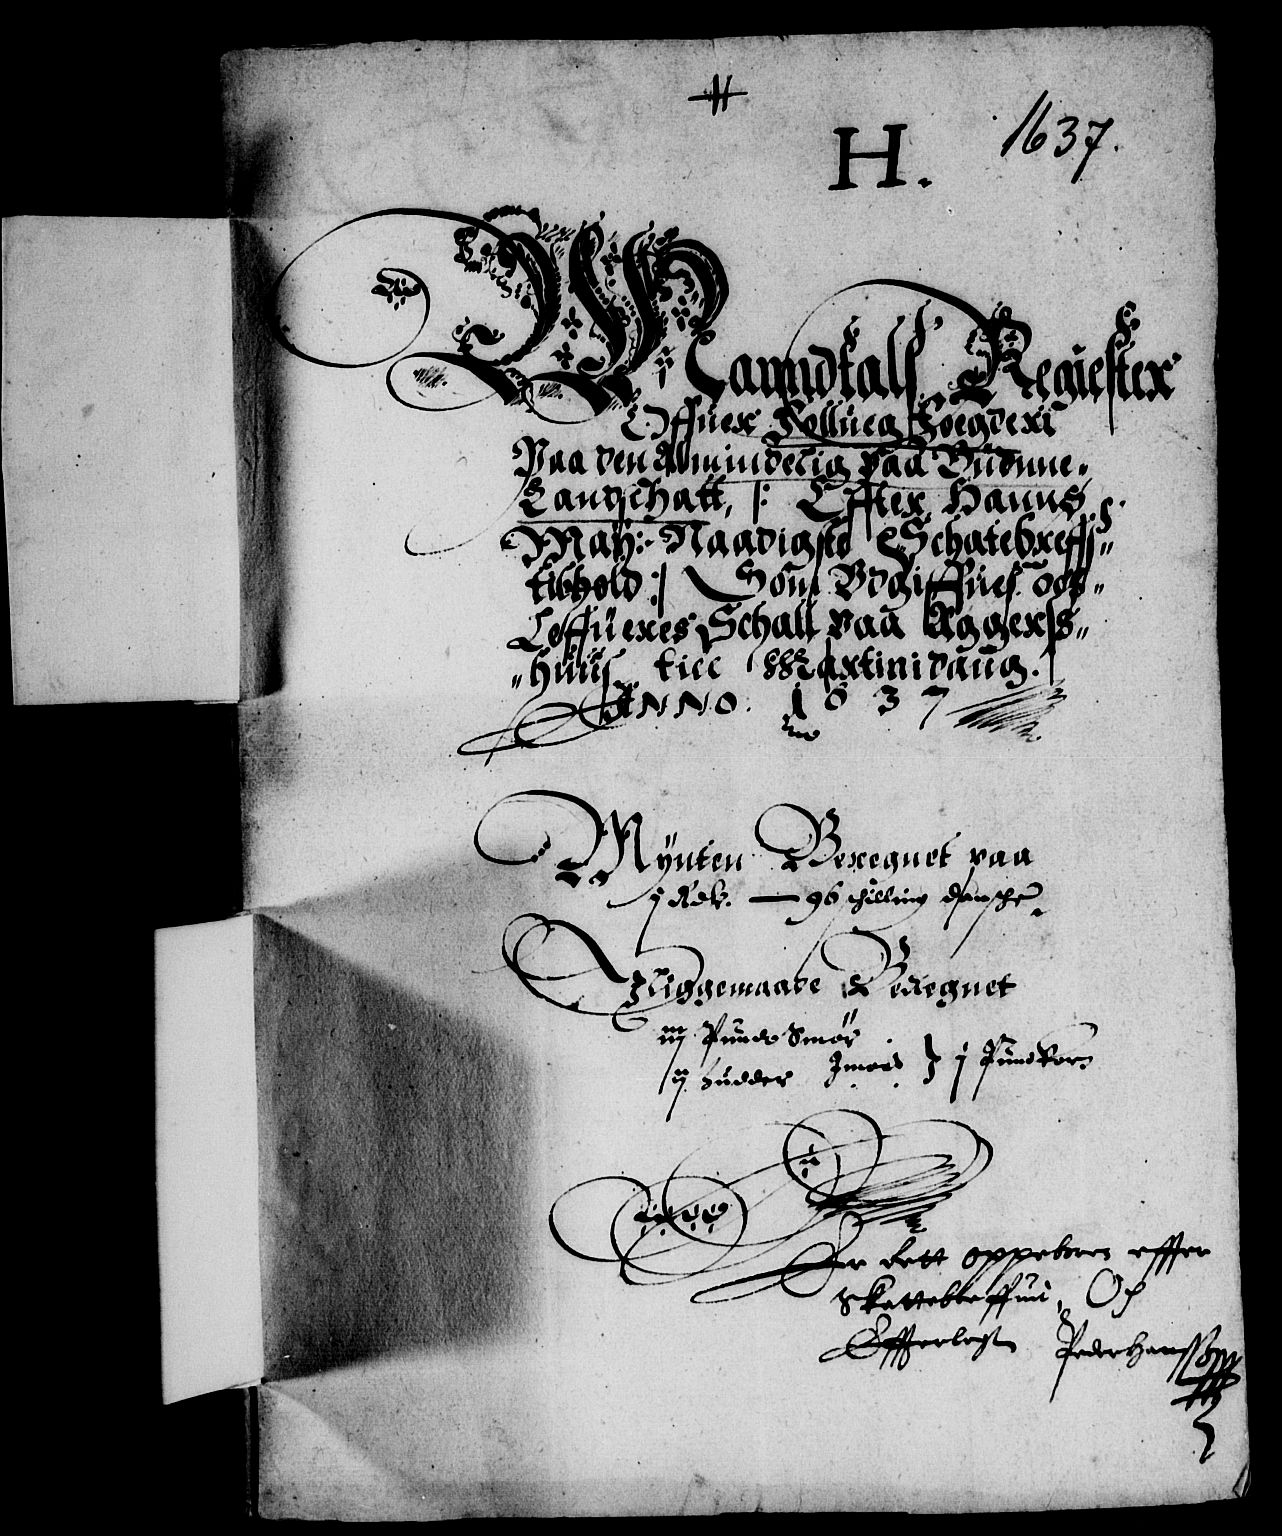 H. 1637.
Manndtals Regiester
Offuer Folloug Foegderi
Paa den Almindelig paa Budune
Landschatt, /: Effter Hanns
May: Naadigste Schatebreffs
tilhold :/ Som Vdgiffues och
Leffueres Schall paa Aggers
Huus till Martini daug.
ANNO. 1637
Mynten Beregnet paa
j Rdlr. — 96 schilling dansche
Liggemaade Beregnet
iij Punds Smør
ij Hudder j Pund Korn
Er dett oppeboren effter
Skattebreffuid, Och
Efferlegt Peder Hanssøn